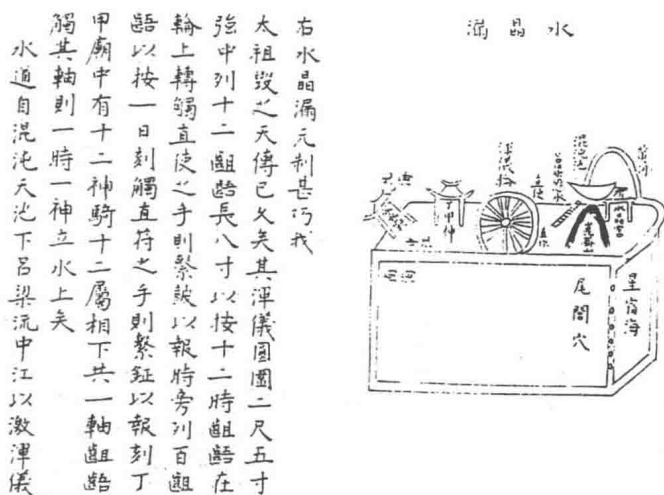 水晶漏
渾儀輪
水晶宮
星宿海
尾閭穴
右水晶漏元制甚巧我
太祖毀之失傳已久矣其渾儀圓圍二尺五寸
強中列十二齟齬長八寸以按十二時齟齬在
輪上轉觸直使之手則繫皷以報時旁列百齟
齬以按一日刻觸直符之手則繫鉦以報刻丁
甲廟中有十二神騎十二屬相下共一軸齟齬
觸其軸則一時一神立水上矣
水道自混沌天池下呂梁流中江以激渾儀